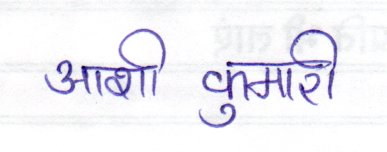 आशी कुमारी